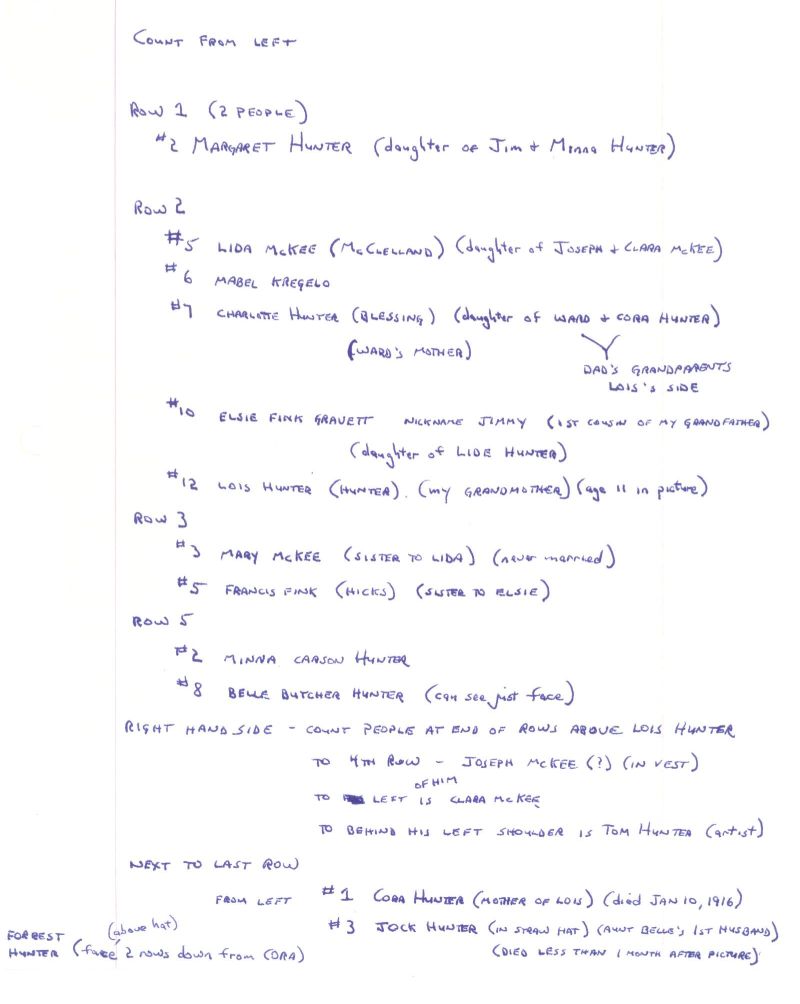 COUNT FROM LEFT
ROW 1 (2 PEOPLE)
#2 MARGARET HUNTER (daughter OF Jim + MINNA HUNTER)
ROW 2
#5 LIDA McKEE (McCLELLAND) (daughter of JOSEPH + CLARA McKEE)
#6 MABEL KREGELO
#7 CHARLOTTE HUNTER (BLESSING) (daughter OF WARD + CORA HUNTER)
(WARD'S MOTHER)
DAD'S GRANDPARENTS
LOIS'S SIDE
#10 ELSIE FINK GRAVETT NICKNAME JIMMY (1ST COUSIN OF MY GRANDFATHER)
(daughter of LIDE HUNTER)
#12 LOIS HUNTER (HUNTER). (MY GRANDMOTHER) (age 11 in picture)
ROW 3
#3 MARY McKEE (SISTER TO LIDA) (never married)
#5 FRANCIS FINK (HICKS) (SISTER TO ELSIE)
ROW 5
#2 MINNA CARSON HUNTER
#8 BELLE BUTCHER HUNTER (can see just face)
RIGHT HAND SIDE - COUNT PEOPLE AT END OF ROWS ABOVE LOIS HUNTER
TO 4TH ROW - JOSEPH McKEE (?) (IN VEST)
TO LEFT OF HIM IS CLARA McKEE
TO BEHIND HIS LEFT SHOULDER IS TOM HUNTER (artist)
NEXT TO LAST ROW
FROM LEFT #1 CORA HUNTER (MOTHER OF LOIS) (died JAN 10, 1916)
#3 JOCK HUNTER (IN STRAW HAT) (AUNT BELLE'S 1ST HUSBAND)
(DIED LESS THAN 1 MONTH AFTER PICTURE)
(above hat)
FORREST
HUNTER (face 2 rows down from CORA)